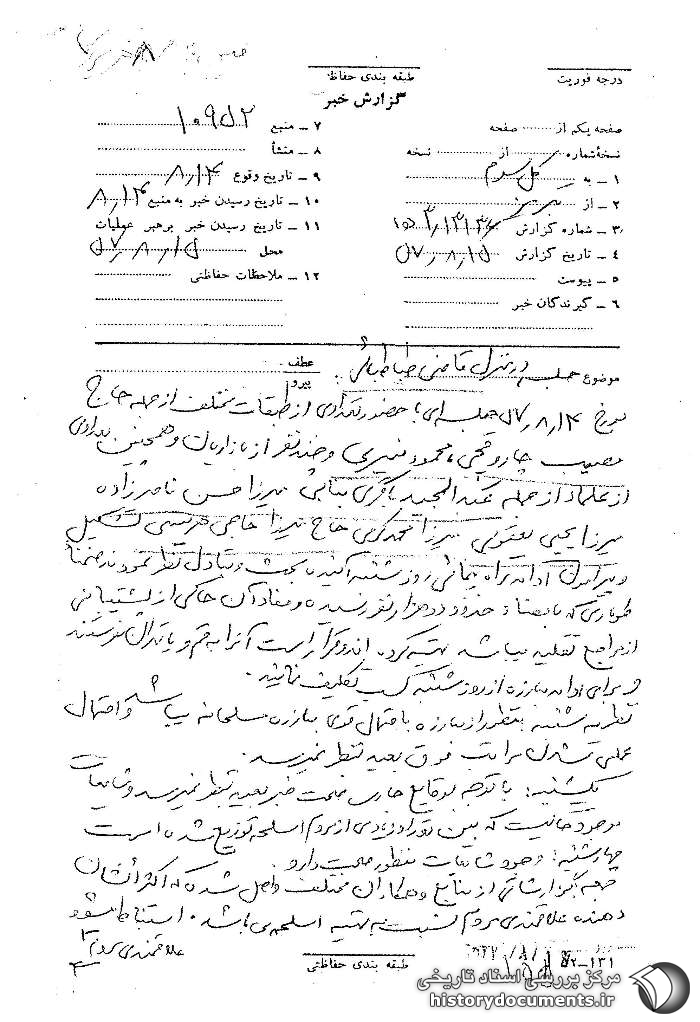 درجه فوریت
طبقه بندی حفاظ
گزارش خبر
صفحه یکم از ........ صفحه
نسخهٔ شماره ........ از ........ نسخه
۱ ـ به کل سوم
۲ ـ از
۳ ـ شماره گزارش
۴ ـ تاریخ گزارش ۵۷٫۸٫۱۵
۵ ـ پیوست
۶ ـ گیرندگان خبر
۷ ـ منبع ۱۰۹۵۲
۸ ـ منشأ
۹ ـ تاریخ وقوع ۸٫۱۴
۱۰ ـ تاریخ رسیدن خبر به منبع ۸٫۱۴
۱۱ ـ تاریخ رسیدن خبر برهبر عملیات
محل ۵۷٫۸٫۱۵
۱۲ ـ ملاحظات حفاظتی
موضوع جلسه در منزل قاضی طباطبائی
عطف
پیرو
مورخ ۵۷٫۸٫۱۴ جلسه ای با حضور تعدادی از طبقات مختلف از جمله حاج
چاروقچی، محمود و چند نفر از بازاریان و همچنین تعدادی
از علماء از جمله عبدالمجید بنابی میرزا حسن ناصرزاده
میرزا یحیی یعقوبی میرزا محمد حاج میرزا تشکیل
و پیرامون ادامه راه پیمائی روز شنبه آینده بحث و تبادل نظر نمودند ضمناً
طوماری که بامضاء حدود دو هزار نفر رسیده و مفاد آن حاکی از پشتیبانی
از مراجع تقلید میباشد تهیه کرده اند و قرار است آنرا به قم و یا تهران بفرستند
و برای ادامه مبارزه از روز شنبه کسب تکلیف نمایند.
نظریه شنبه منظور از مبارزه باحتمال قوی مبارزه مسلحانه میباشد و احتمال
عملی شدن مراتب فوق بعید بنظر نمیرسد.
یکشنبه: با توجه بوقایع جاری صحت خبر بعید بنظر نمیرسد و شایعات
موجود حاکیست که بین تعداد زیادی از مردم اسلحه توزیع شده است
چهارشنبه: وجود شایعات منظور صحت دارد.
گزارشاتی از منابع و همکاران مختلف واصل شده که اکثراً نشان
دهنده علاقمندی مردم نسبت به تهیه اسلحه می باشد. استنباط میشود
علاقمندی مردم
طبقه بندی حفاظتی
۵۲-۱۳۱
مرکز بررسی اسناد تاریخی
historydocuments.ir